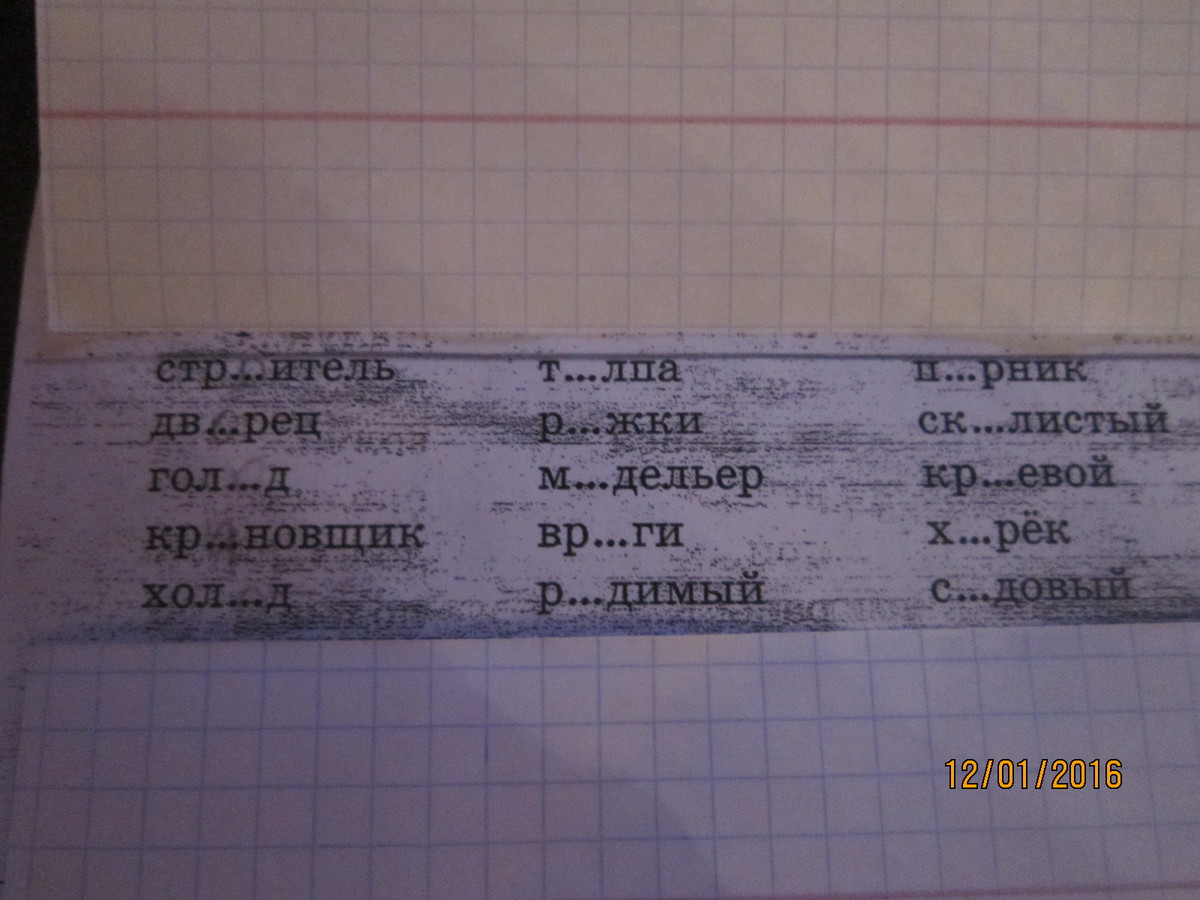 стр...итель т...лпа п...рник
дв...рец р...жки ск...листый
гол...д м...дельер кр...евой
кр...новщик вр...ги х...рёк
хол...д р...димый с...довый
12/01/2016